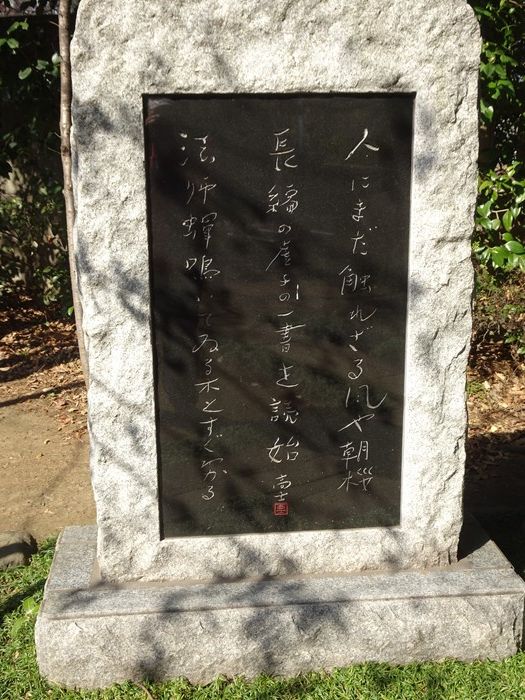 人にまだ触れざる風や朝桜
長編の虚子の一書を読始 高士
法師蟬鳴いてゐる木とすぐ分る